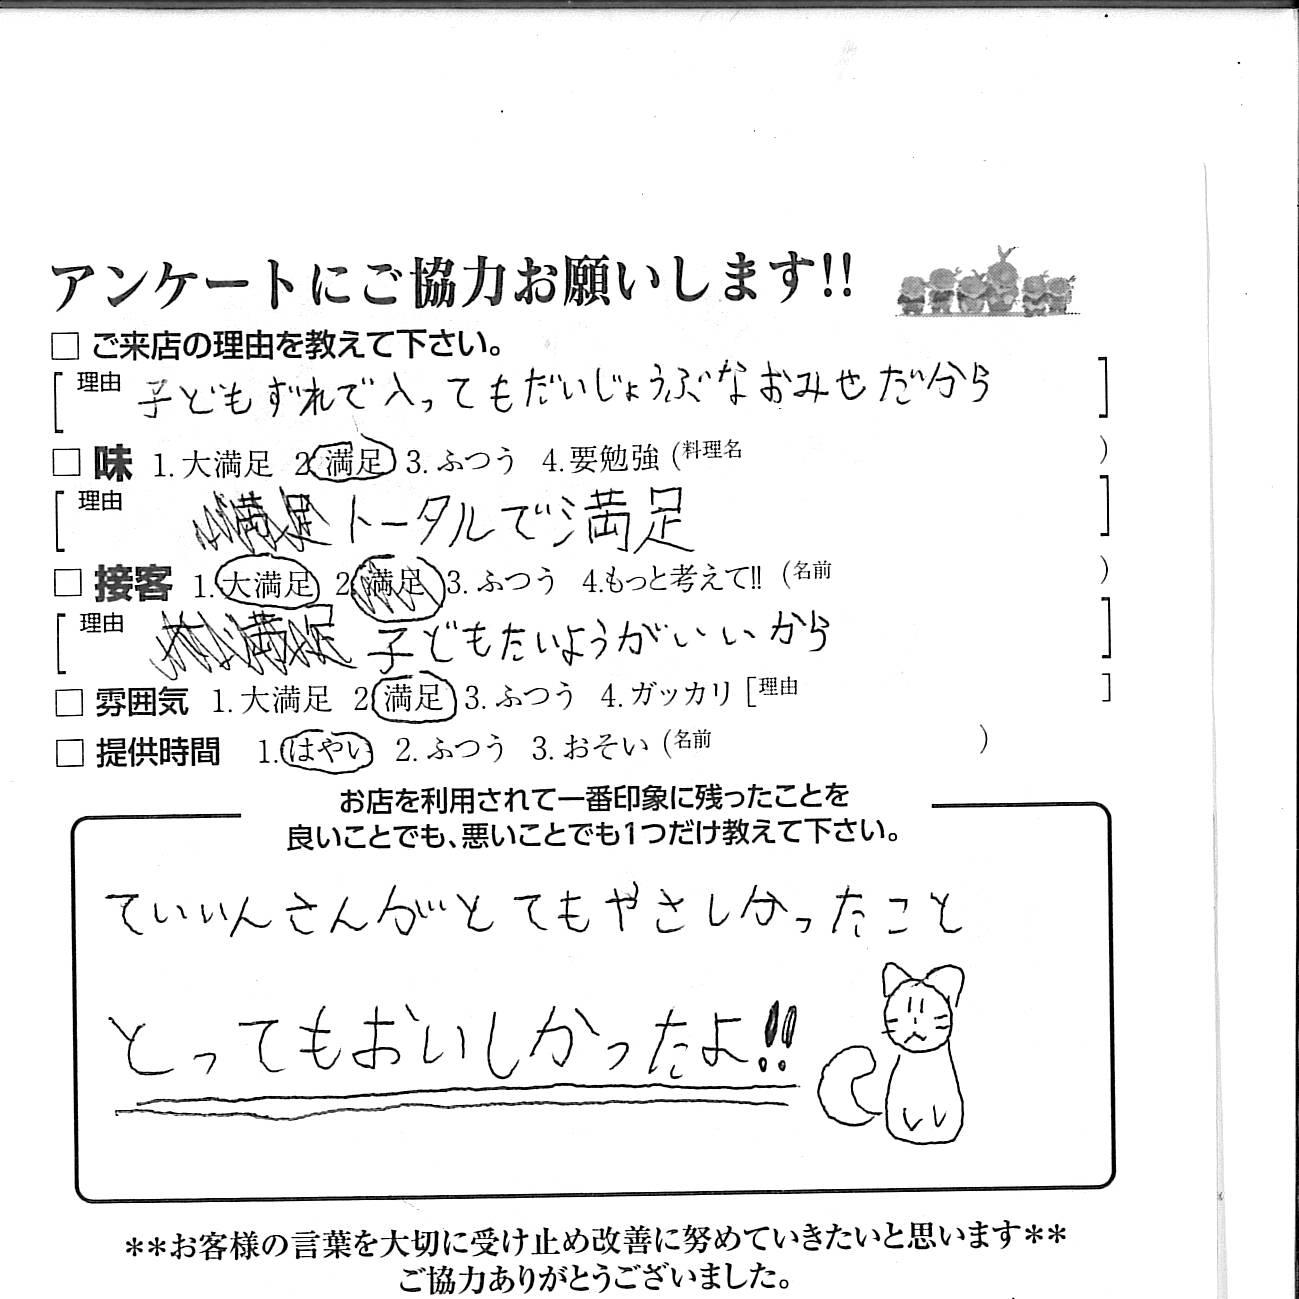 アンケートにご協力お願いします!!
□ ご来店の理由を教えて下さい。
[理由 子どもずれで入ってもだいじょうぶなおみせだから]
□ 味 1.大満足 2.満足 3.ふつう 4.要勉強 (料理名 )
[理由 満足 トータルで満足]
□ 接客 1.大満足 2.満足 3.ふつう 4.もっと考えて!! (名前 )
[理由 大満足 子どもたいようがいいから]
□ 雰囲気 1.大満足 2.満足 3.ふつう 4.ガッカリ [理由 ]
□ 提供時間 1.はやい 2.ふつう 3.おそい (名前 )
お店を利用されて一番印象に残ったことを
良いことでも、悪いことでも1つだけ教えて下さい。
ていいんさんがとてもやさしかったこと
とってもおいしかったよ!!
**お客様の言葉を大切に受け止め改善に努めていきたいと思います**
ご協力ありがとうございました。